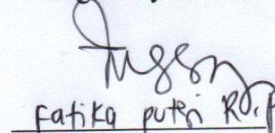 Fatika putri R.P